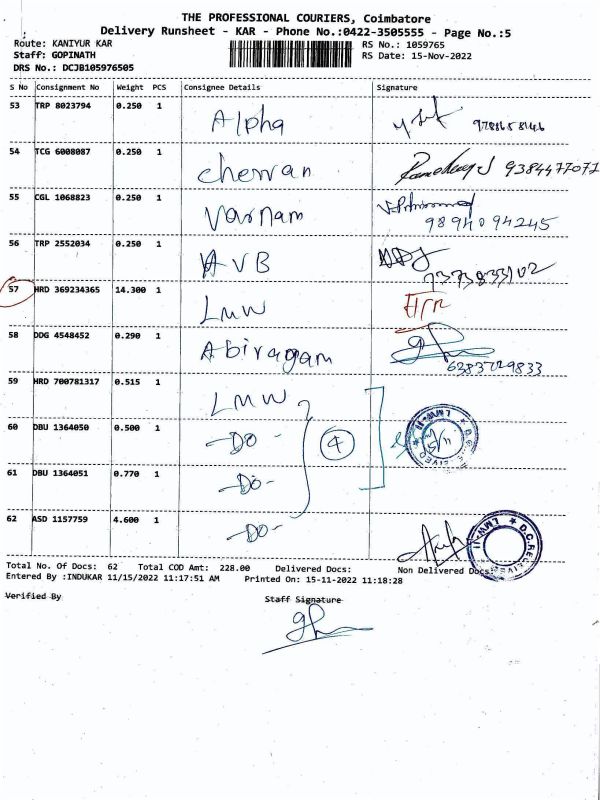 THE PROFESSIONAL COURIERS, Coimbatore
Delivery Runsheet - KAR - Phone No.:0422-3505555 - Page No.:5
Route: KANIYUR KAR
Staff: GOPINATH
DRS No.: DCJB105976505
RS No.: 1059765
RS Date: 15-Nov-2022
S No Consignment No Weight PCS Consignee Details Signature
53 TRP 8023794 0.250 1 Alpha
54 TCG 6008087 0.250 1 cheran 9384477071
55 CGL 1068823 0.250 1 Varnam 9894094245
56 TRP 2552034 0.250 1 AVB
57 HRD 369234365 14.300 1 LMW
58 DDG 4548452 0.290 1 Abiragam 6383729833
59 HRD 700781317 0.515 1 LMW
60 DBU 1364050 0.500 1 -DO- 4
61 DBU 1364051 0.770 1 -DO-
62 ASD 1157759 4.600 1 -DO-
LMW-II ★ D.C.RECEIVED ★
LMW-II ★ D.C.RECEIVED ★
Total No. Of Docs: 62 Total COD Amt: 228.00 Delivered Docs: Non Delivered Docs:
Entered By :INDUKAR 11/15/2022 11:17:51 AM Printed On: 15-11-2022 11:18:28
Verified By Staff Signature